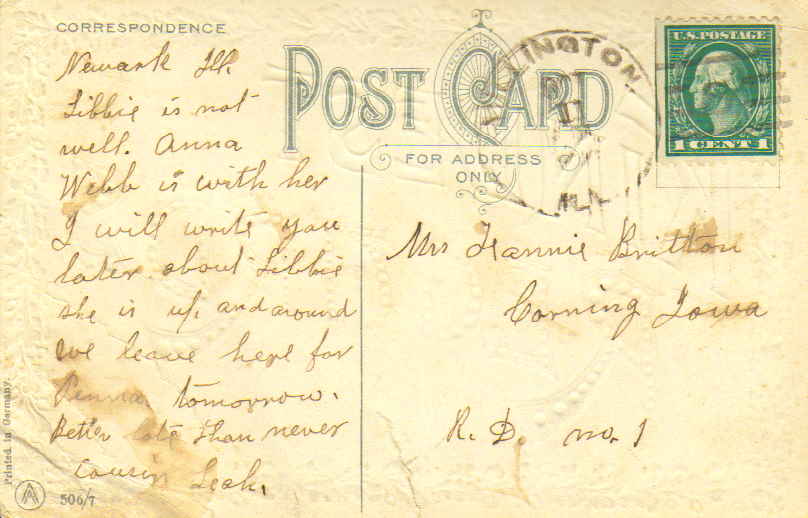 CORRESPONDENCE
Newark Ill.
Libbie is not
well. Anna
Webb is with her
I will write you
later about Libbie
she is up and around
we leave here for
Penna. tomorrow.
Better late than never
Cousin Leah.
POST CARD
FOR ADDRESS
ONLY
U.S. POSTAGE
1 CENT 1
Mrs Fannie Britton
Corning Iowa
R. D. no. 1
Printed in Germany.
506/7